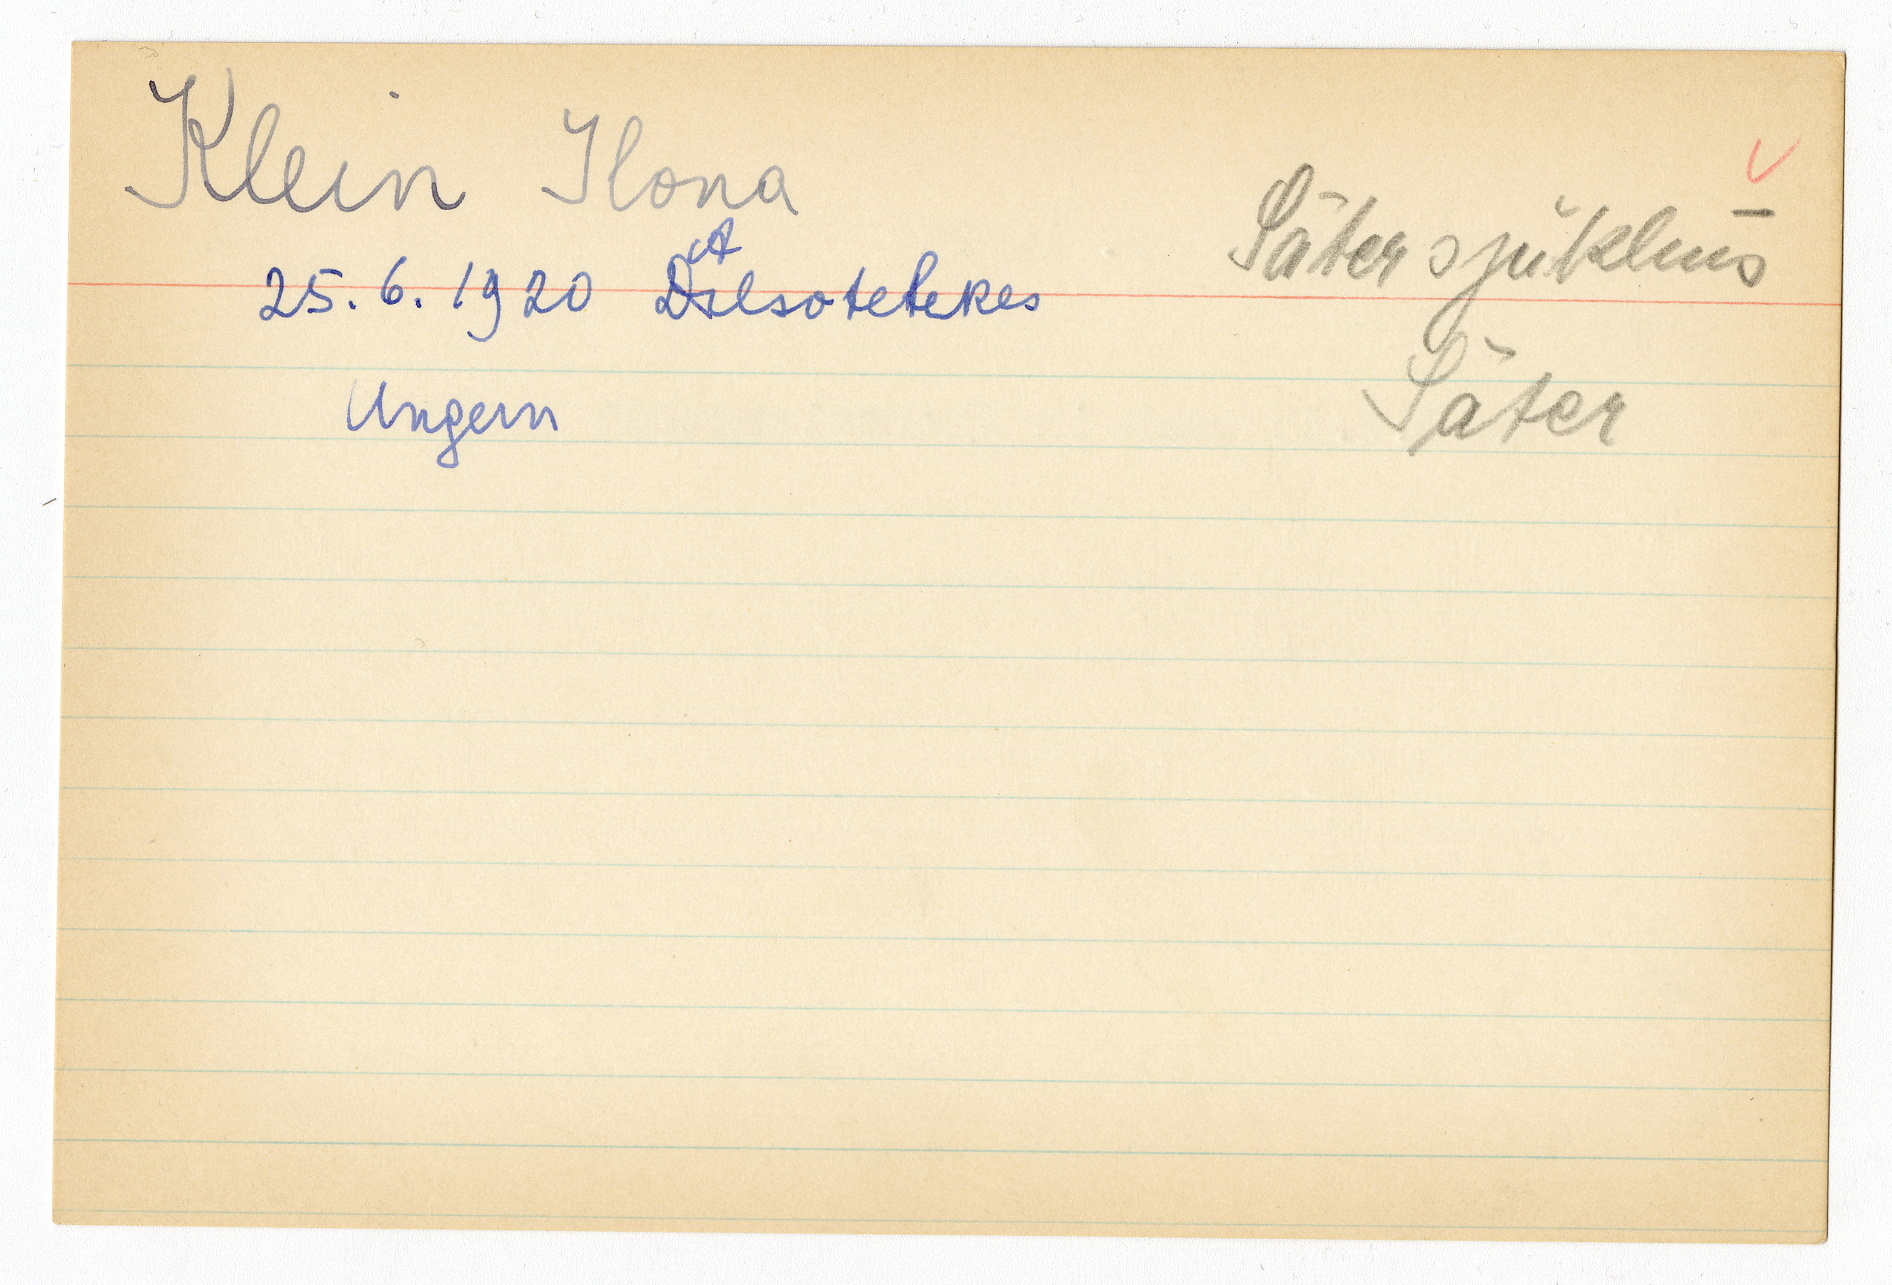 Klein Ilona
Säter sjukhus
25.6.1920
Ungern
Säter